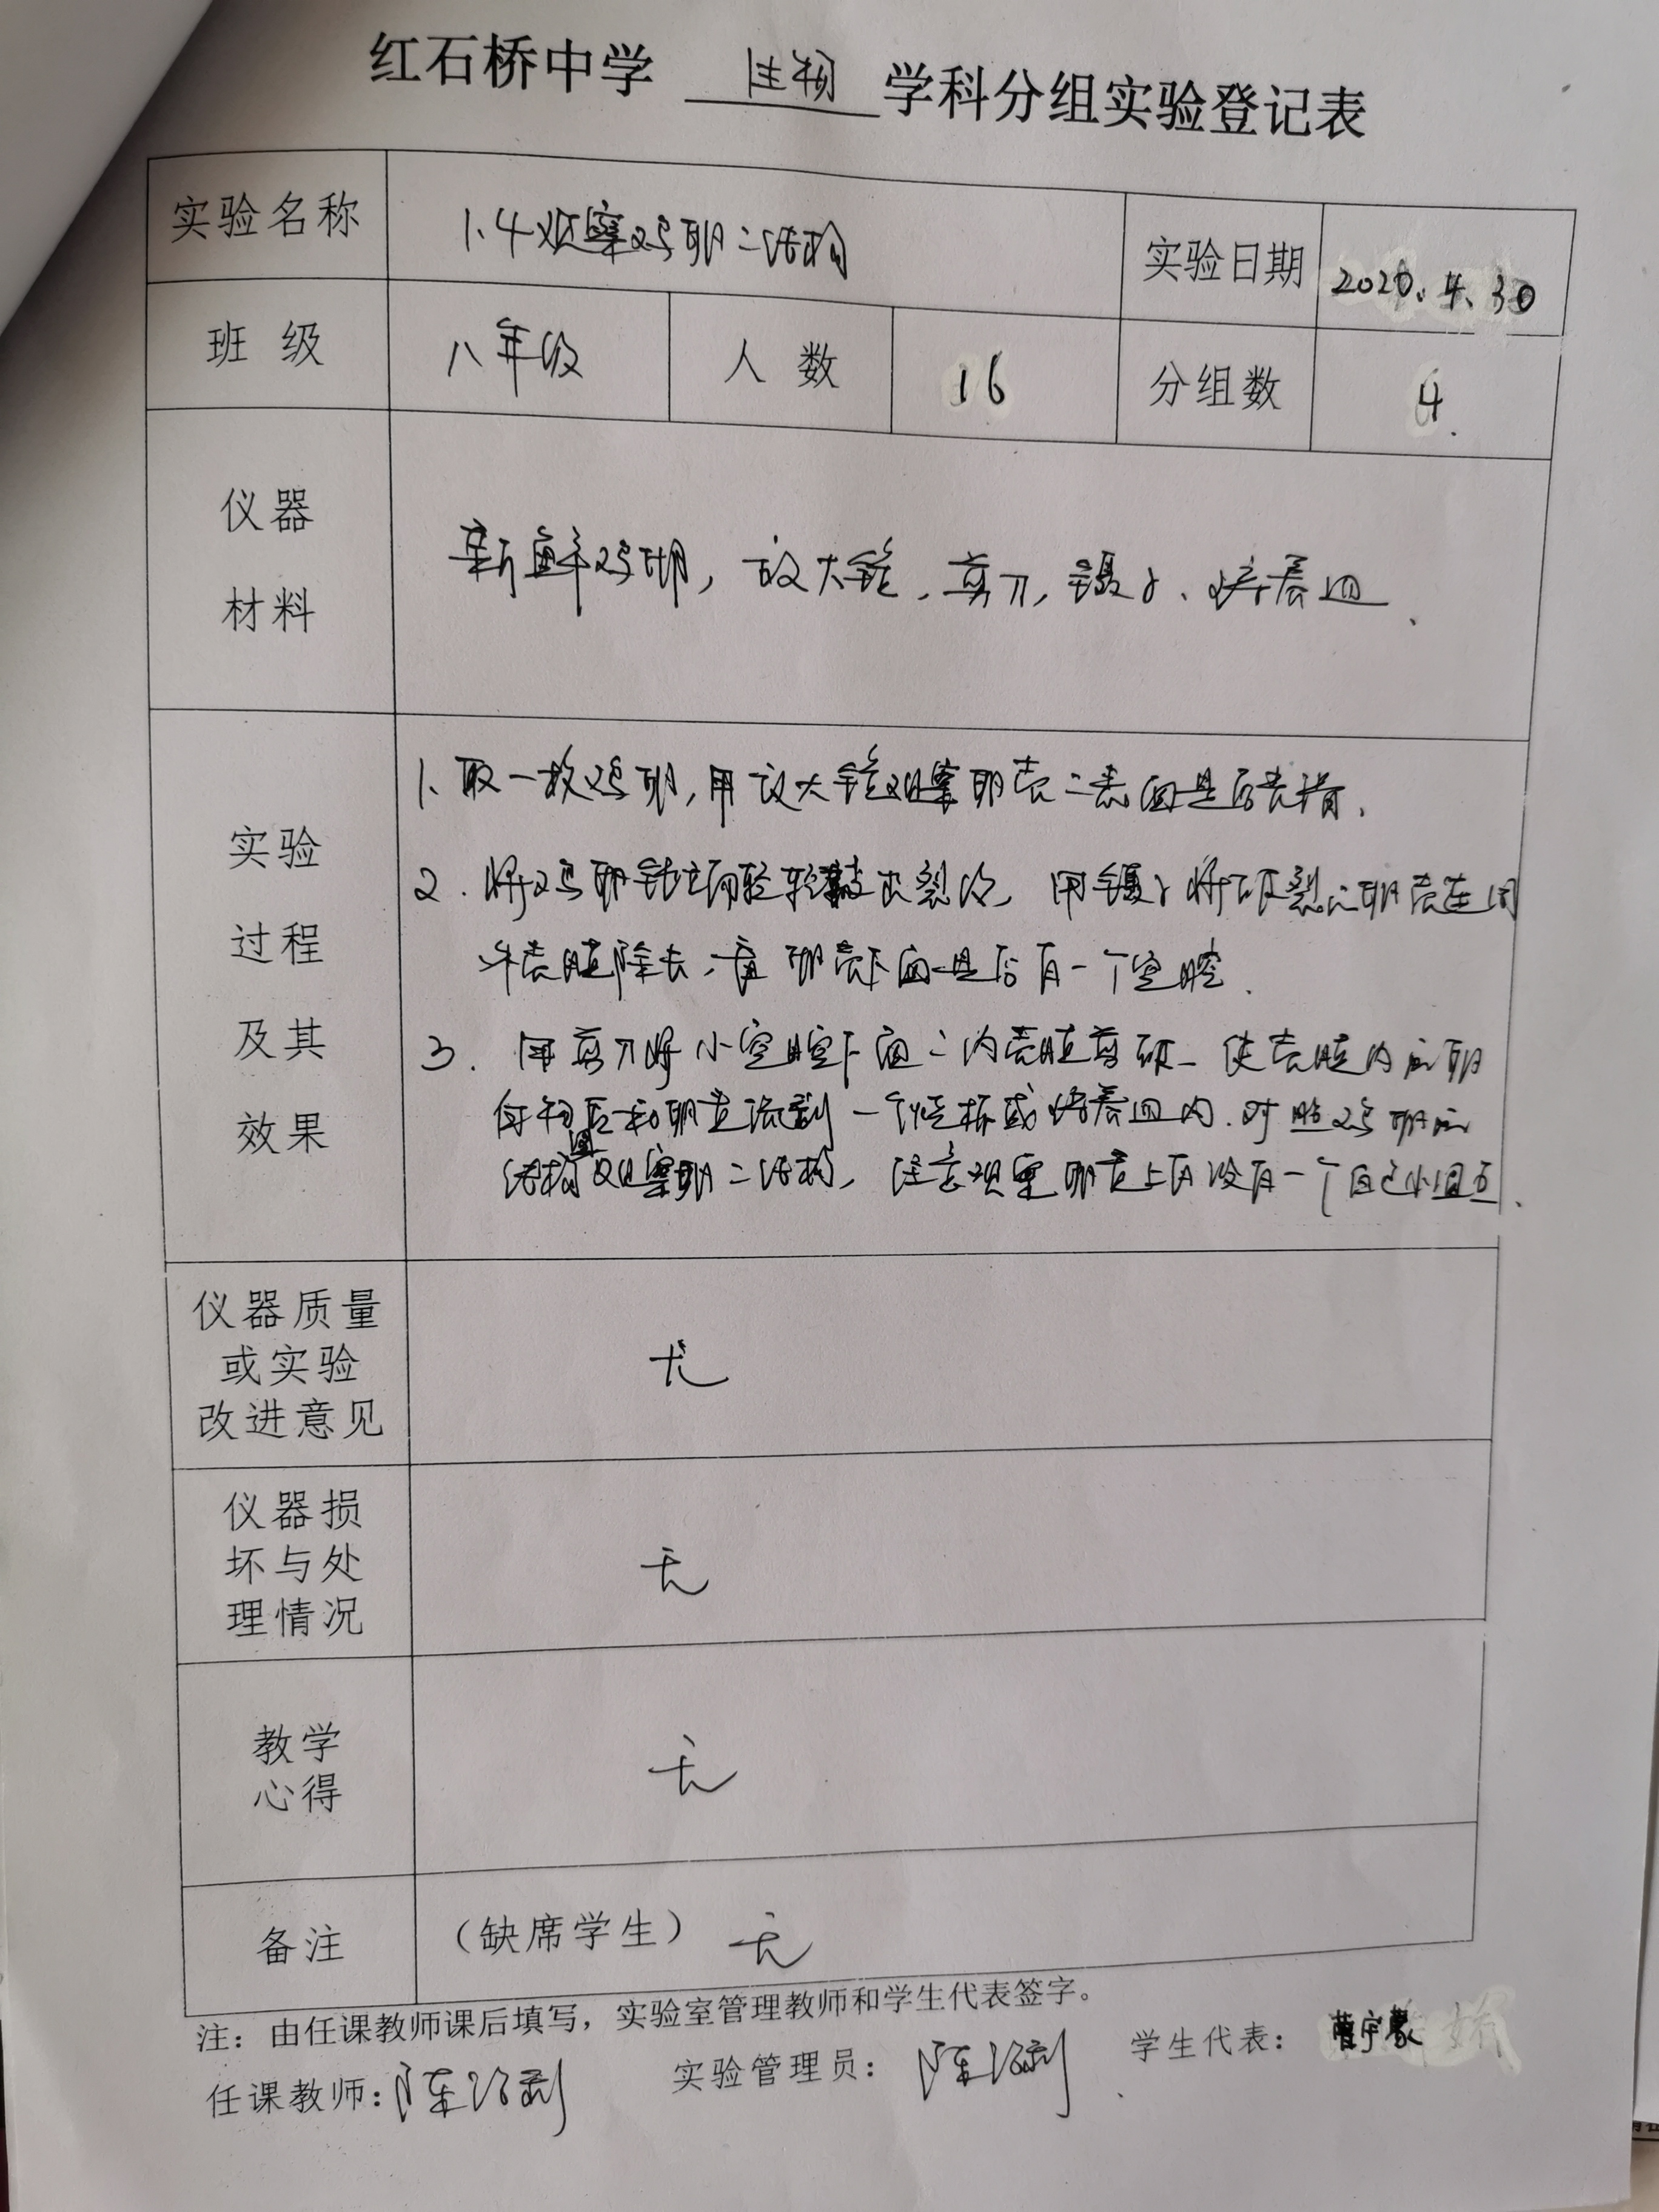 红石桥中学 生物 学科分组实验登记表
实验名称 1.4观察鸡卵的结构 实验日期 2020.4.30
班级 八年级 人数 16 分组数 4.
仪器
材料
新鲜鸡卵,放大镜,剪刀,镊子、培养皿.
实验
过程
及其
效果
1.取一枚鸡卵,用放大镜观察卵壳的表面是否光滑.
2.将鸡卵钝端轻轻敲出裂纹,用镊子将破裂的卵壳连同
外壳膜除去,看卵壳下面是否有一个空腔.
3.用剪刀将小空腔下面的内壳膜剪破、使壳膜内的卵
结构图观察卵的结构,注意观察卵黄上有没有一个白色小圆点.
仪器质量
或实验
改进意见
无
仪器损
坏与处
理情况
无
教学
心得
无
备注 (缺席学生) 无
注:由任课教师课后填写,实验室管理教师和学生代表签字。
任课教师: 实验管理员: 学生代表: